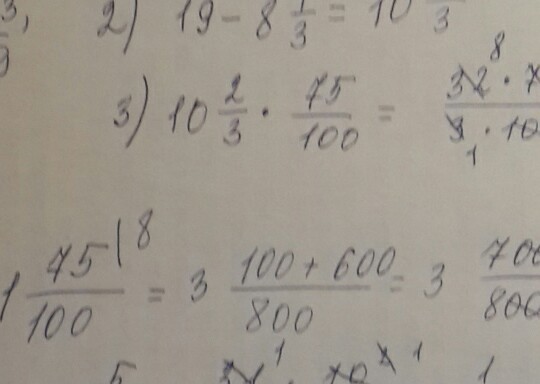 2) 19 - 8 1/3 = 10 /3
3) 10 2/3 · 75/100 = 32 8 · 7 / 3 1 · 10
1 75/100 |8 = 3 100 + 600 / 800 = 3 700 / 800
5 1 10 1 1